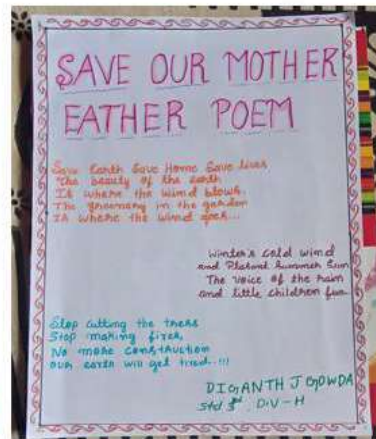 SAVE OUR MOTHER
EATHER POEM
Save Earth Save Home Save lives
The beauty of the earth
Is where the wind blows.
The greenery in the garden
Is where the wind goes...
Winter's cold wind
and Plasant Summer Sun
The voice of the rain
and little children fun.
Stop cutting the trees
Stop making fires
No more construction
our earth will get tired..!!!
DIGANTH J GOWDA
Std 3rd, DIV-H